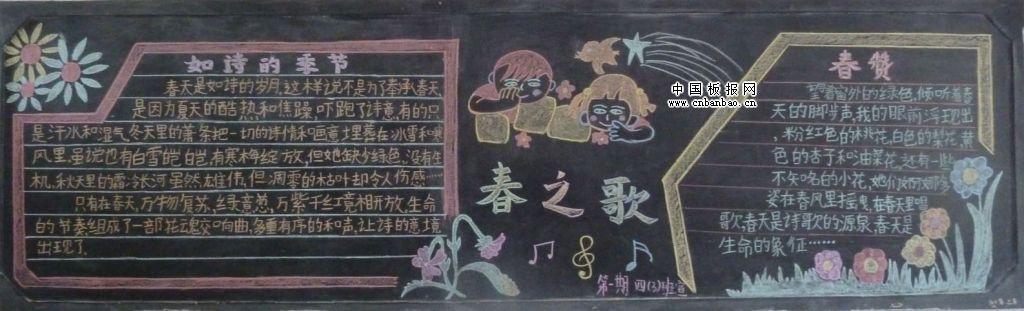 如诗的季节
春天是如诗的岁月,这样说不是为了奉承春天,
是因为夏天的酷热和焦躁,吓跑了诗意,有的只
是汗水和湿气。冬天里的萧条把一切的诗情和画意埋葬在冰雪和寒
风里,虽说也有白雪皑皑,有寒梅绽放,但她缺少绿色,没有生
机,秋天里的霜冷长河虽然雄伟,但凋零的枯叶却令人伤感……
只有在春天,万物复苏,绿意葱,万紫千红竞相开放,生命
的节奏组成了一部花魂交响曲,多重有序的和声,让诗的意境
出现了。
春之歌
第一期 四(3)班宣
中国板报网
www.cnbanbao.cn
春赞
窗外的绿色,倾听着春
天的脚步声,我的眼前浮现出
,粉红色的桃花,白色的梨花,黄
色的杏子和油菜花,还有一些
不知名的小花,她们
姿在春风里摇曳,在春天里唱
歌,春天是诗歌的源泉,春天是
生命的象征……